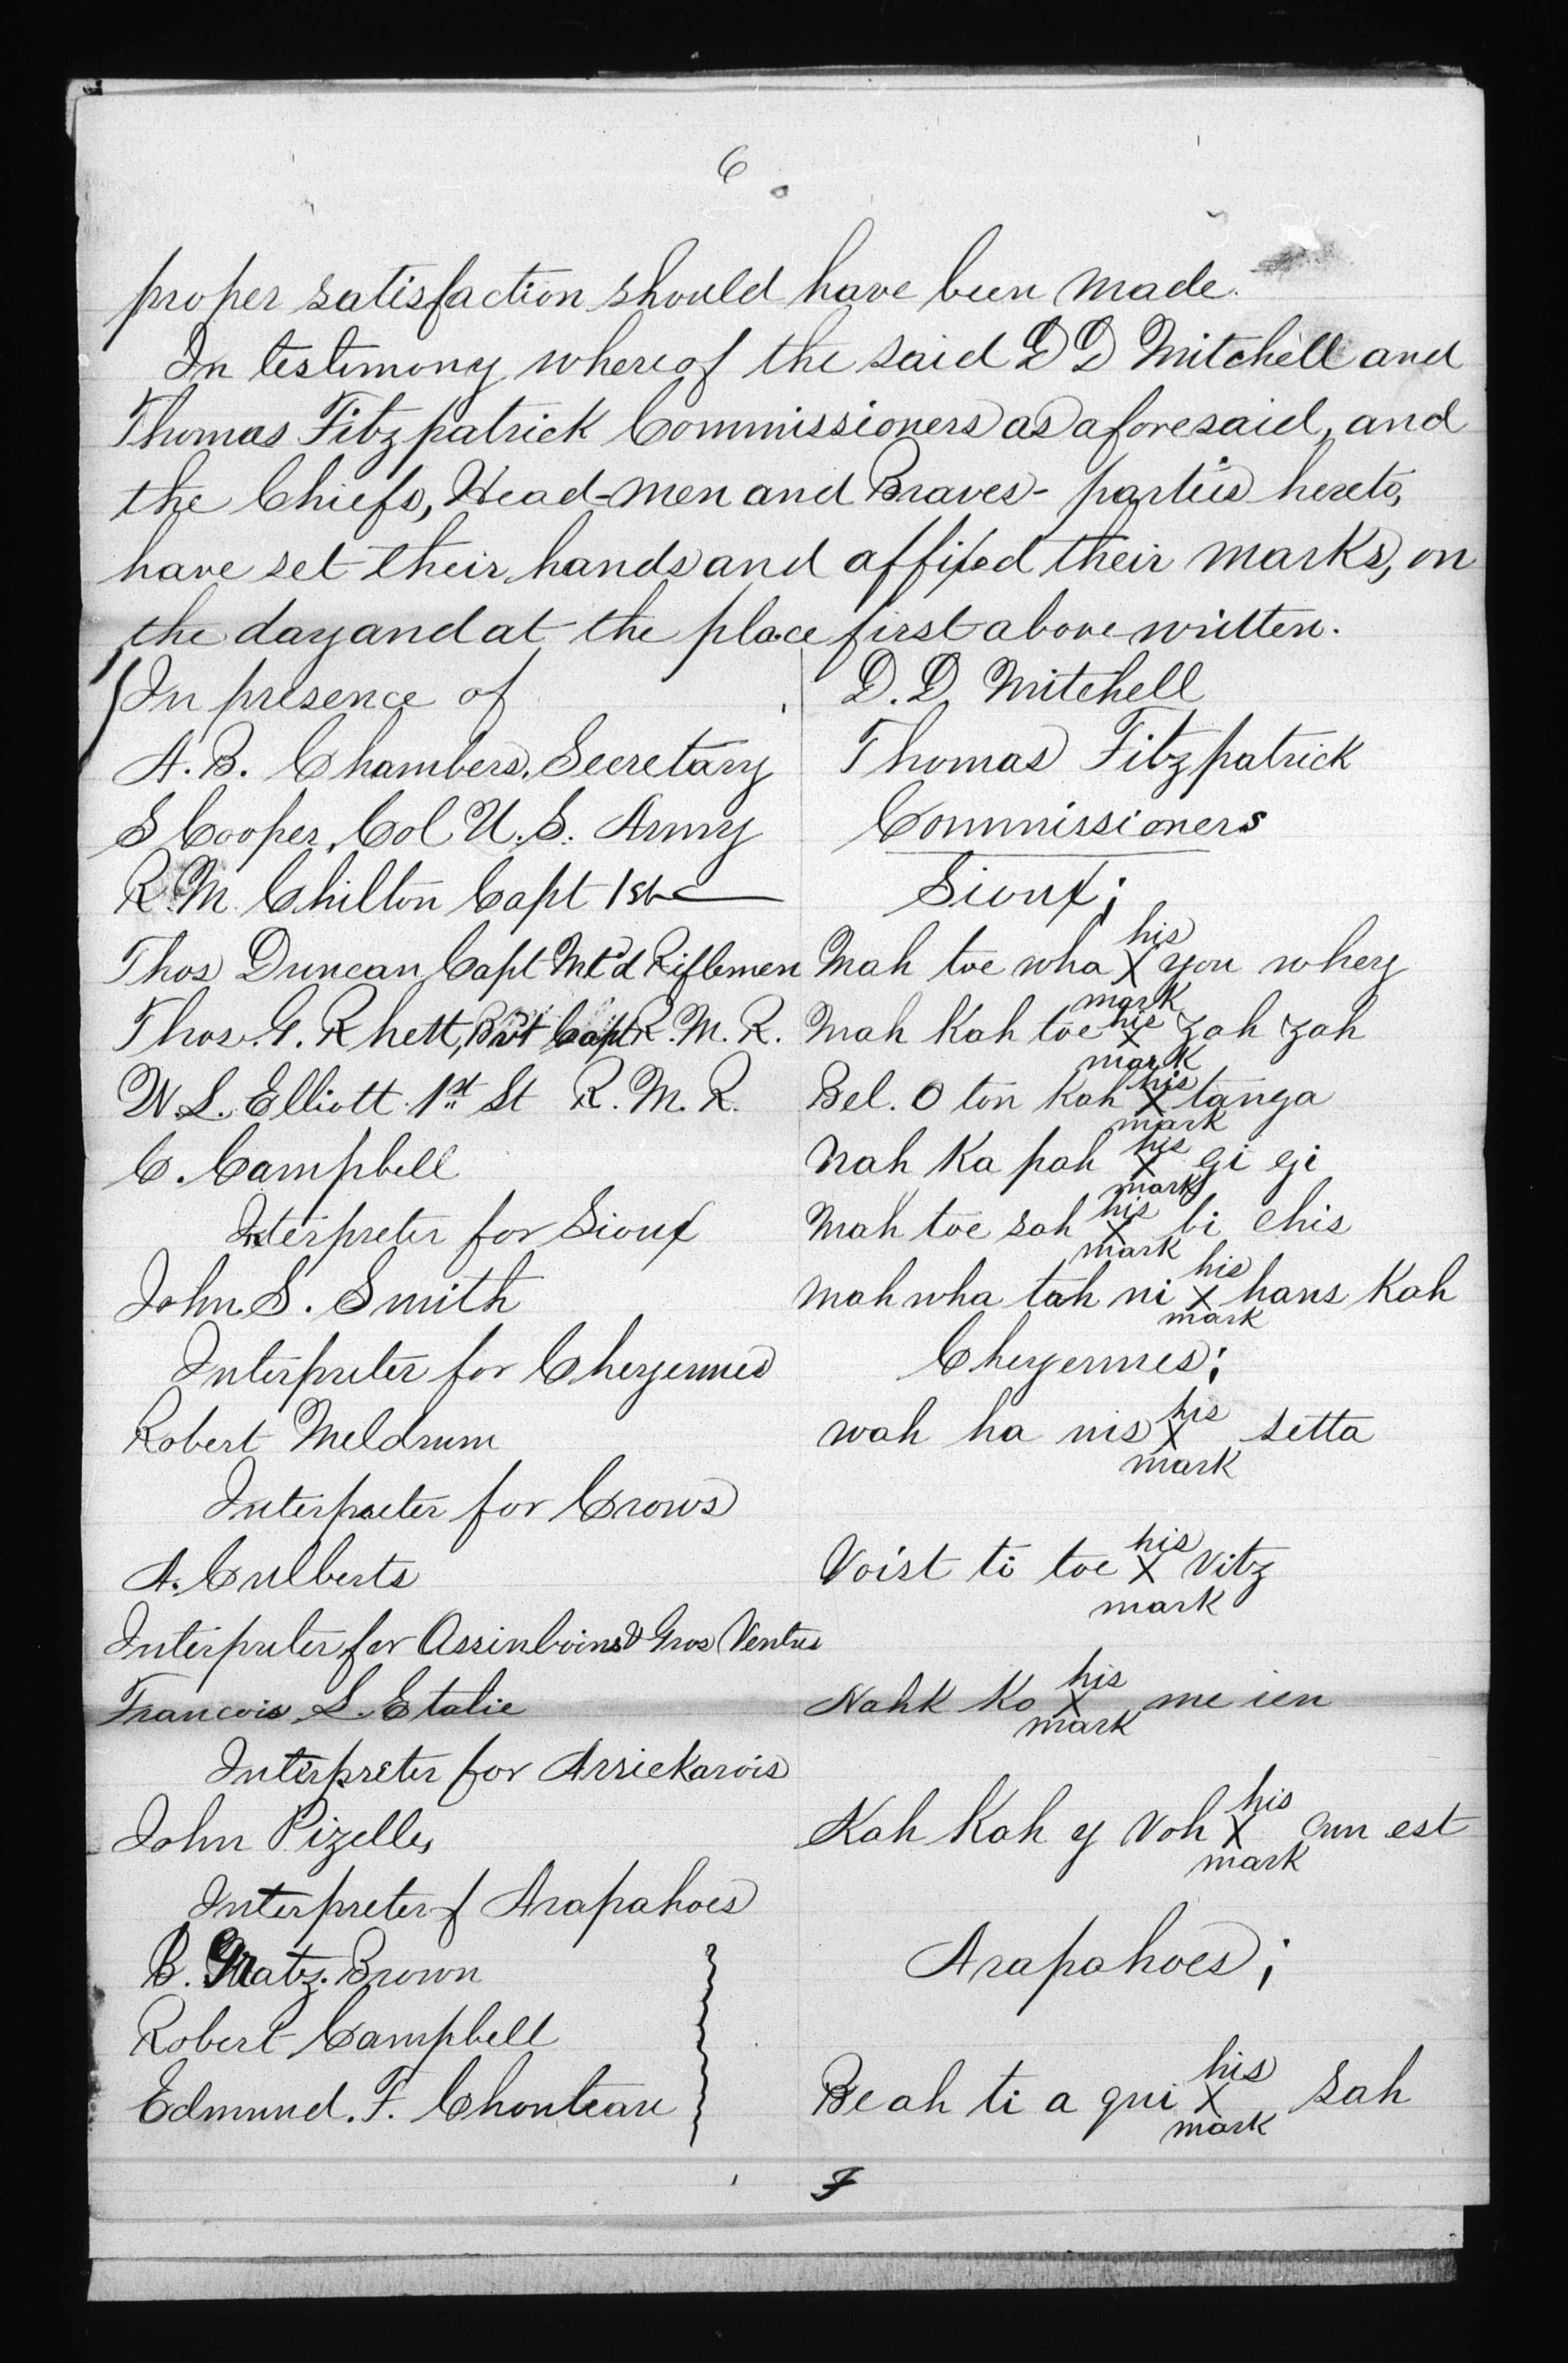 6
proper satisfaction should have been made.
In testimony whereof the said D D Mitchell and
Thomas Fitzpatrick Commissioners as aforesaid, and
the Chiefs, Head-men and Braves - parties hereto,
have set their hands and affixed their marks, on
the day and at the place first above written.
In presence of
A. B. Chambers, Secretary
S Cooper, Col U. S. Army
R. M. Chilton Capt 1st
Thos Duncan, Capt Mt'd Riflemen
Thos. G. Rhett, Bvt Capt R. M. R.
W. L. Elliott 1st Lt R. M. R.
C. Campbell
Interpreter for Sioux
John S. Smith
Interpreter for Cheyennes
Robert Meldrum
Interpreter for Crows
A. Culberts
Interpreter for Assinboins & Gros Ventres
Francois L. Etalie
Interpreter for Arrickarois
John Pizelle,
Interpreter f Arapahoes
B. Gratz. Brown
Robert Campbell
Edmund. F. Chouteau
D. D. Mitchell
Thomas Fitzpatrick
Commissioners
Sioux;
his
Mah toe wha X you whey
mark
his
Mah Kah toe X zah zah
mark
his
Bel. O ton Kah X tanga
mark
his
Nah Ka pah X gi gi
mark
his
Mah toe sah X bi chis
mark
his
Mah wha tah ni X hans Kah
mark
Cheyennes;
his
Wah ha nis X setta
mark
his
Voist ti toe X Vitz
mark
his
Nahk Ko X me ien
mark
his
Kah Kah y Voh X am est
mark
Arapahoes;
his
Beah ti a qui X sah
mark